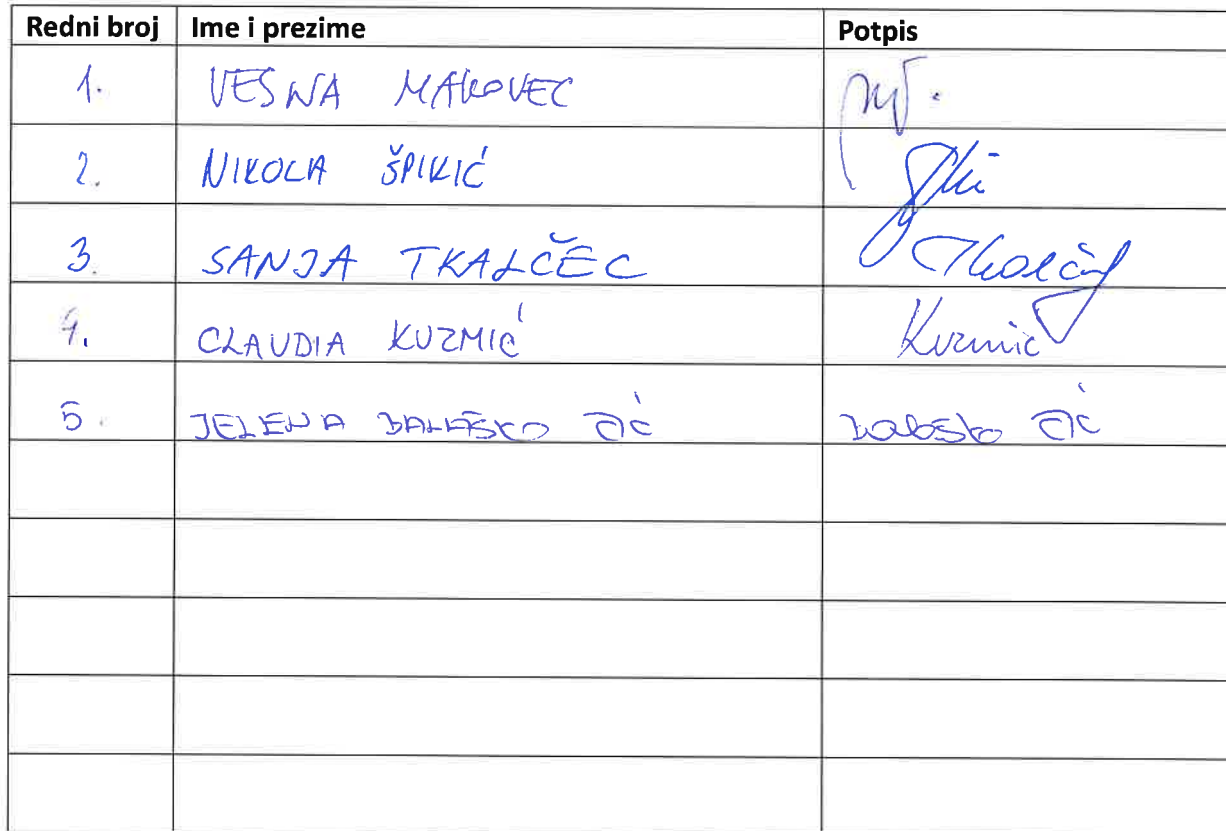 Redni broj Ime i prezime Potpis
1. VESNA MAKOVEC
2. NIKOLA ŠPIKIĆ
3. SANJA TKALČEC Tkalčec
4. CLAUDIA KUZMIĆ Kuzmić
5. JELENA BALAŠKO